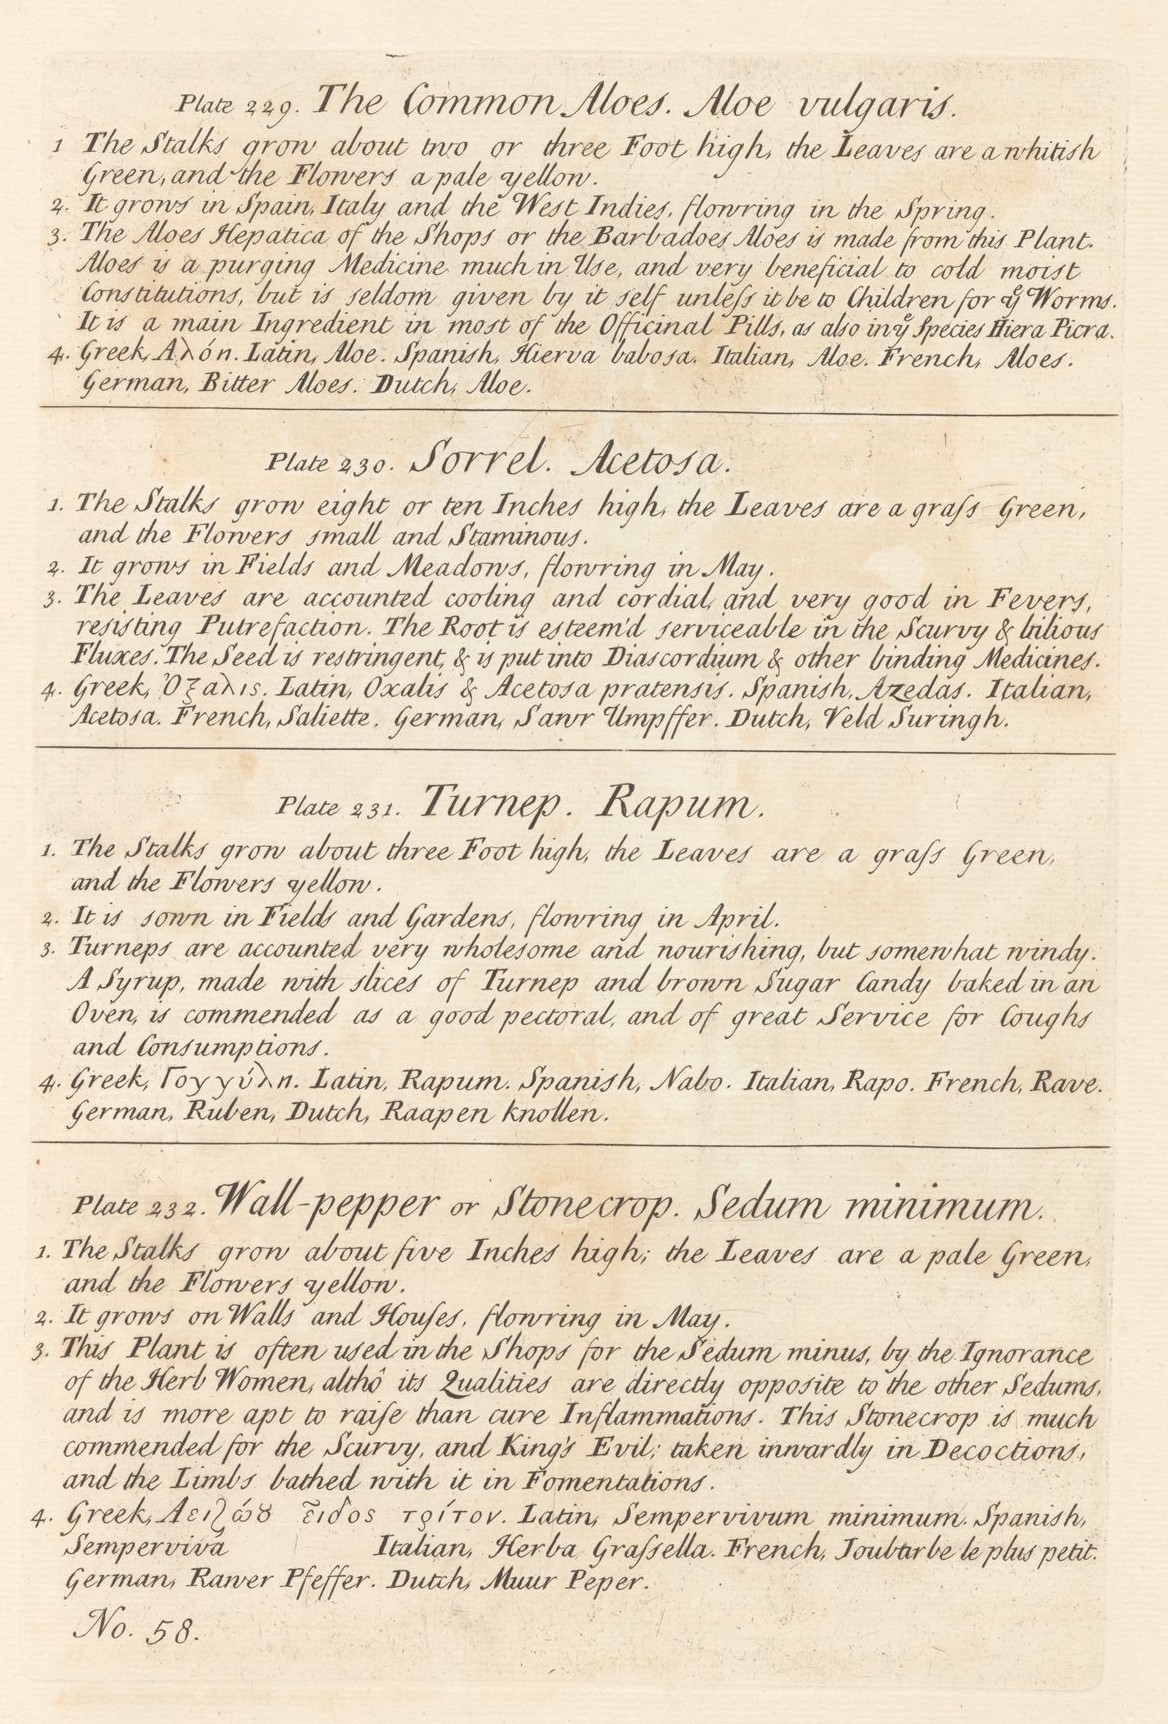 Plate 229. The Common Aloes. Aloe vulgaris.
1 The Stalks grow about two or three Foot high, the Leaves are a whitish
Green, and the Flowers a pale yellow.
2. It grows in Spain, Italy and the West Indies, flowring in the Spring.
3. The Aloes Hepatica of the Shops or the Barbadoes Aloes is made from this Plant.
Aloes is a purging Medicine much in Use, and very beneficial to cold moist
Constitutions, but is seldom given by it self unleſs it be to Children for yͤ Worms.
It is a main Ingredient in most of the Officinal Pills, as also in yͤ Species Hiera Picra.
4. Greek, Αλόη. Latin, Aloe. Spanish, Hierva babosa. Italian, Aloe. French, Aloes.
German, Bitter Aloes. Dutch, Aloe.
Plate 230. Sorrel. Acetosa.
1. The Stalks grow eight or ten Inches high, the Leaves are a graſs Green,
and the Flowers small and Staminous.
2. It grows in Fields and Meadows, flowring in May.
3. The Leaves are accounted cooling and cordial, and very good in Fevers,
resisting Putrefaction. The Root is esteem'd serviceable in the Scurvy & bilious
Fluxes. The Seed is restringent, & is put into Diascordium & other binding Medicines.
4. Greek, Ὀξαλις. Latin, Oxalis & Acetosa pratensis. Spanish, Azedas. Italian,
Acetosa. French, Saliette. German, Sawr Umpffer. Dutch, Veld Suringh.
Plate 231. Turnep. Rapum.
1. The Stalks grow about three Foot high, the Leaves are a graſs Green,
and the Flowers yellow.
2. It is sown in Fields and Gardens, flowring in April.
3. Turneps are accounted very wholesome and nourishing, but somewhat windy.
A Syrup, made with slices of Turnep and brown Sugar Candy baked in an
Oven, is commended as a good pectoral, and of great Service for Coughs
and Consumptions.
4. Greek, Γογγύλη. Latin, Rapum. Spanish, Nabo. Italian, Rapo. French, Rave.
German, Ruben, Dutch, Raapen knollen.
Plate 232. Wall-pepper or Stonecrop. Sedum minimum.
1. The Stalks grow about five Inches high; the Leaves are a pale Green,
and the Flowers yellow.
2. It grows on Walls and Houſes, flowring in May.
3. This Plant is often used in the Shops for the Sedum minus, by the Ignorance
of the Herb Women, althô its Qualities are directly opposite to the other Sedums,
and is more apt to raiſe than cure Inflammations. This Stonecrop is much
commended for the Scurvy, and King's Evil; taken inwardly in Decoctions,
and the Limbs bathed with it in Fomentations.
4. Greek, Αειζώȣ ε͂ιδος τρίτον. Latin, Sempervivum minimum. Spanish,
Semperviva Italian, Herba Graſsella. French, Joubarbe le plus petit.
German, Rawer Pfeffer. Dutch, Muur Peper.
No. 58.